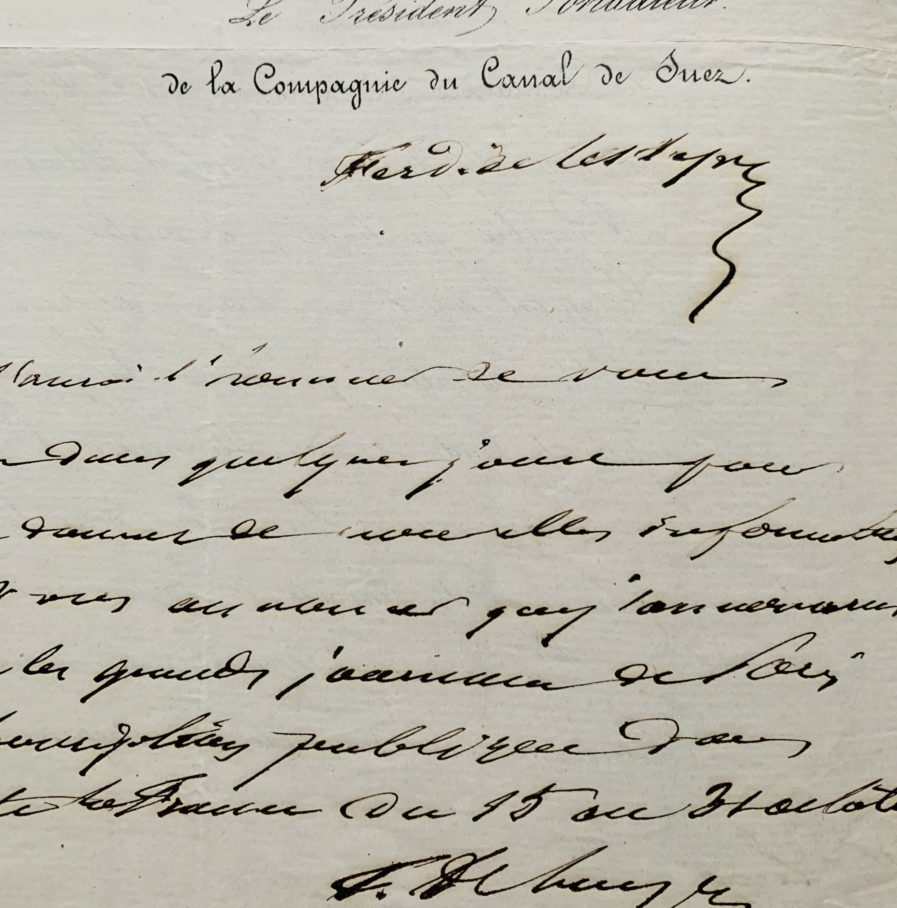 Le Président Fondateur
de la Compagnie du Canal de Suez.
Ferd. de Lesseps
J'aurai l'honneur de vous
dans quelques jours pour
donner de nouvelles informations
vous annoncer que j'annoncerai
les grands journaux de Paris
souscription publique dans
la France du 15 au 31 octobre